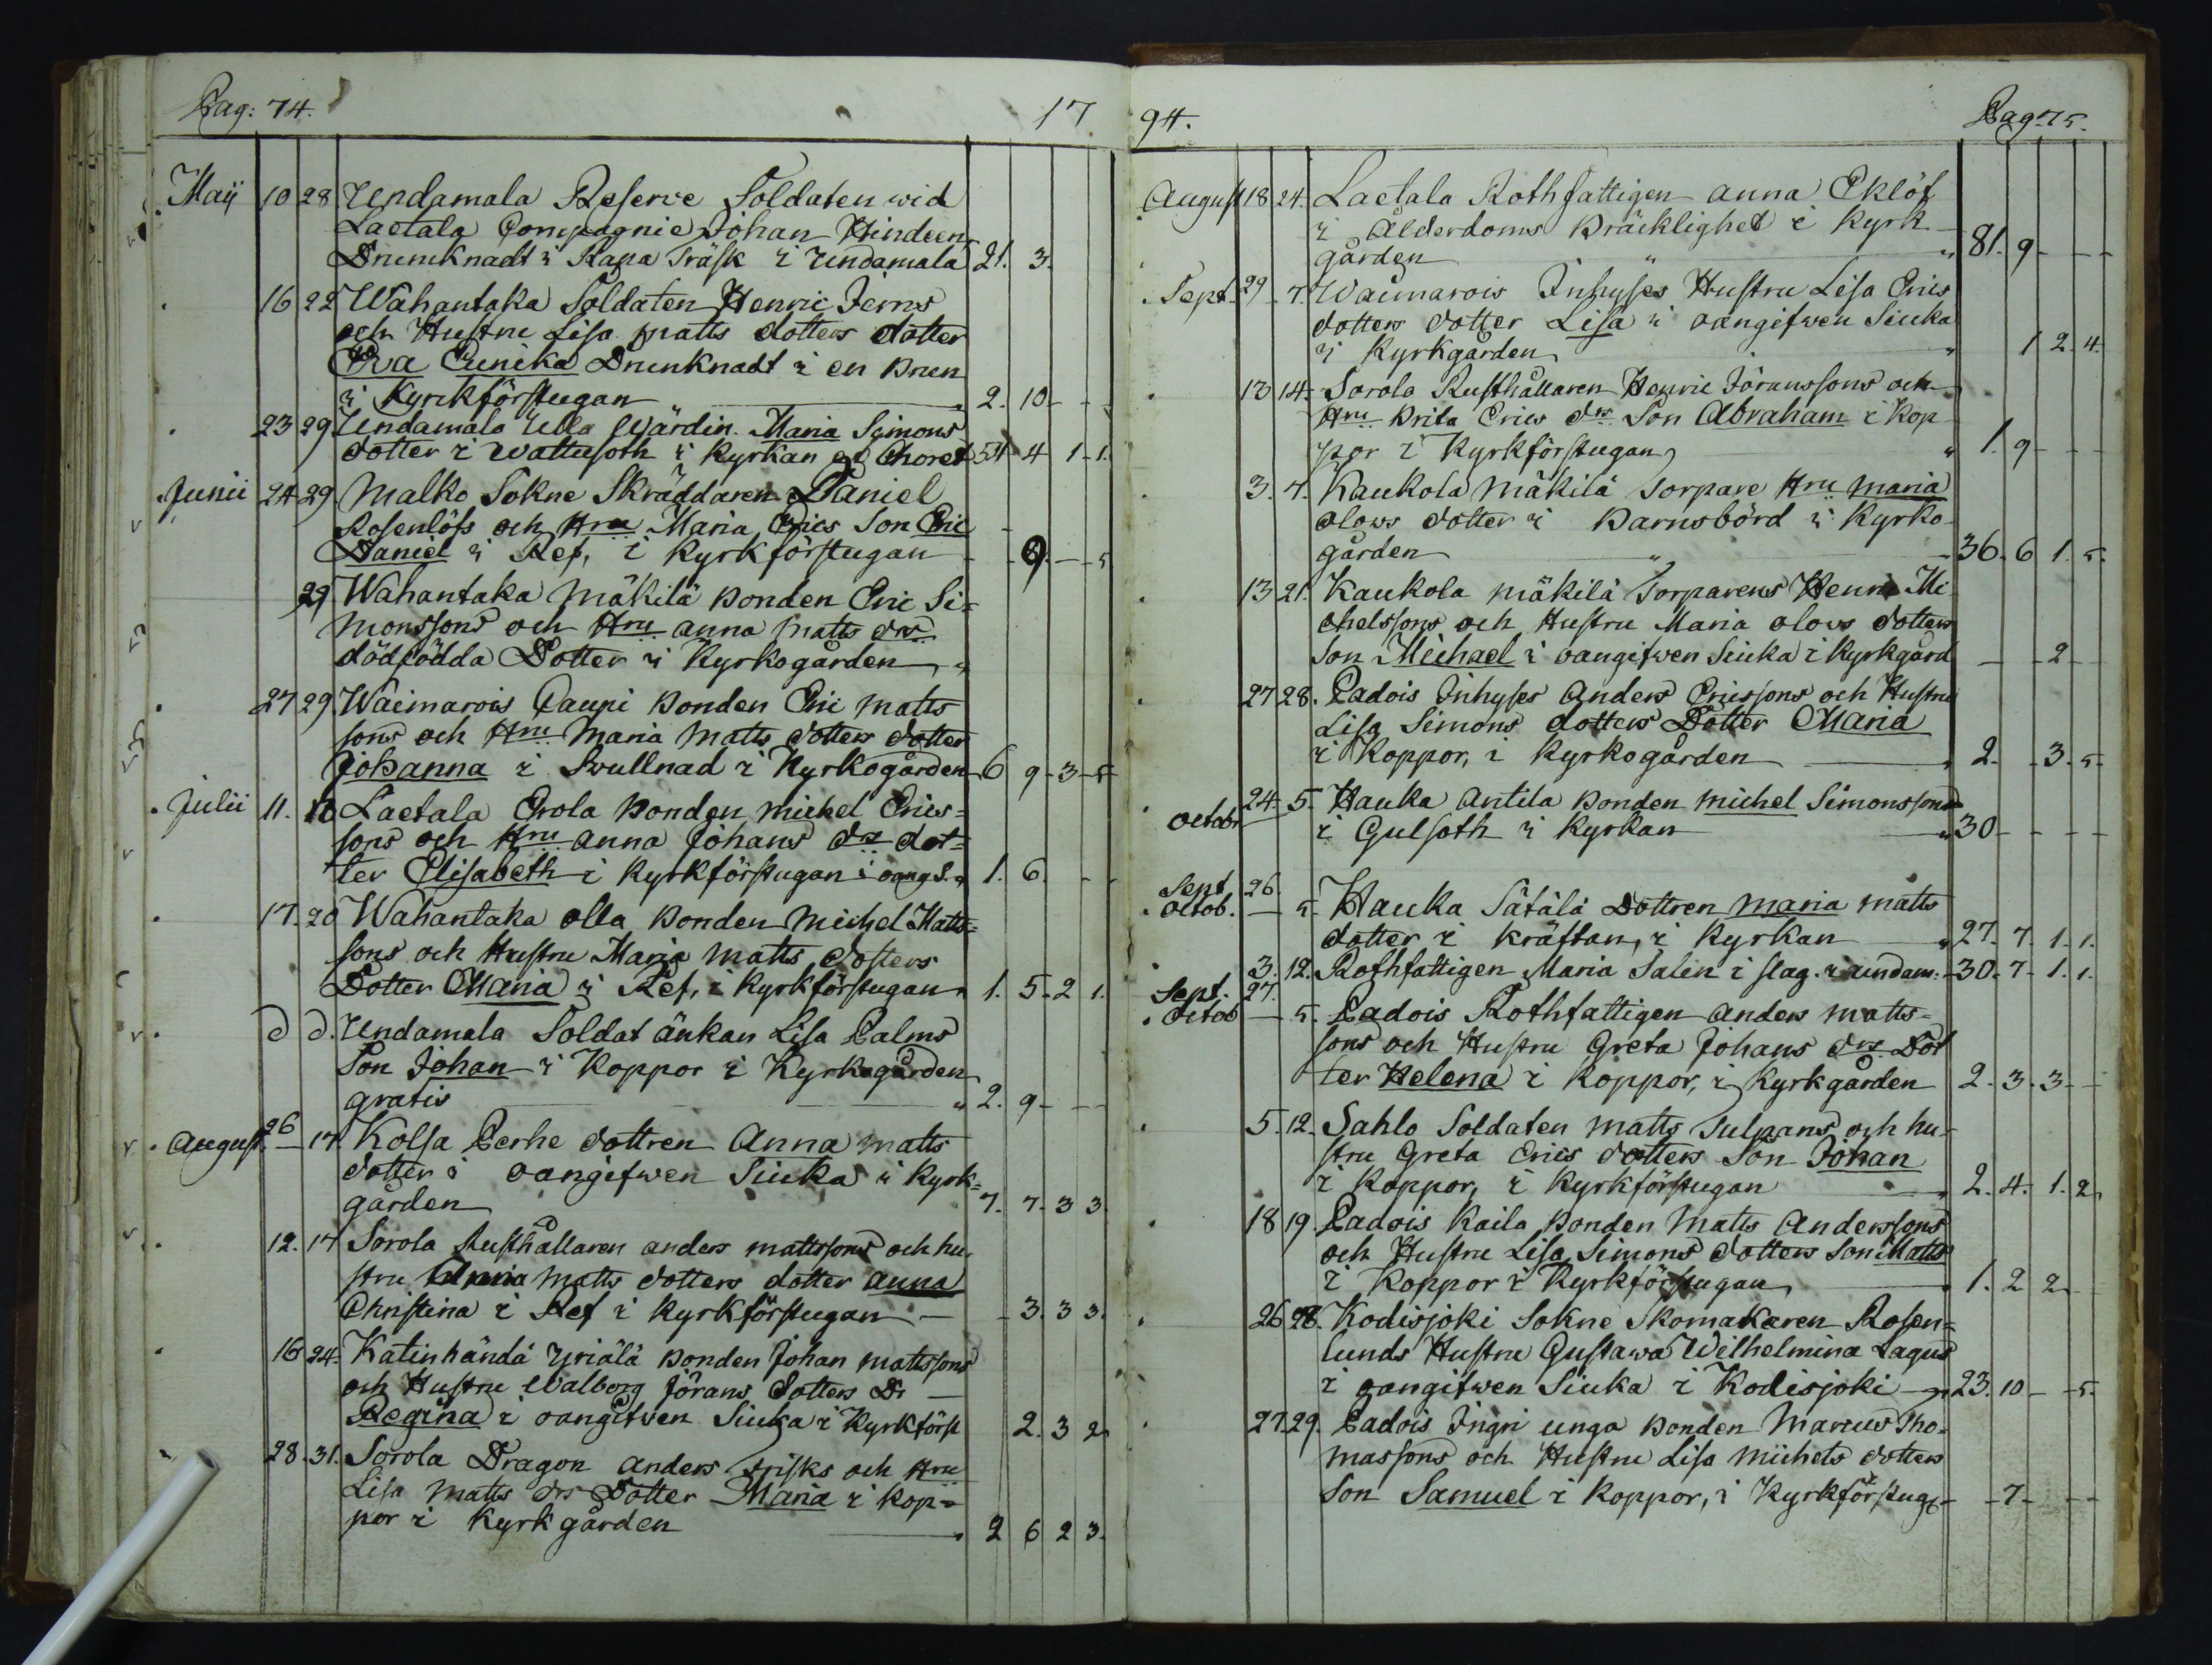 Pag: 74. 17
Maij 10 28 Undamala Reserve Soldaten wid
Laetala Compagnie Johan Hindeen
Drunknadt i Kapa Träsk i Undamala 21. 3.
16 22 Wahantaka Soldaten Henric Jerns
och Hustru Lisa Matts dotters dotter
Eva Eunika Drunknadt i en Brun
i Kyrkförstugan 2. 10
23 29 Undamala Ulla Gjärdin Maria Simons
dotter i Wattusoth i Kyrkan Choret 54 4 1 1.
Junii 24 29 Malko Sokne Skräddaren Daniel
Rosenlöfs och Hru Maria Erics Son Eric
Daniel i Ref, i Kyrkförstugan 9. 5
29 Wahantaka Mäkilä Bonden Eric Si=
monssons och Hru Anna Matts drs
dödfödda Dotter i Kyrkogården
27 29. Waimarois Caupi Bonden Eric Matts
sons och Hru Maria Matts dotters dotter
Johanna i Swullnad i Kyrkogården 6 9 3 5
Julii 11. 18 Laetala Erola Bonden Michel Erics=
sons och Hru Anna Johans drs dot=
ter Elisabeth i Kyrkförstugan i oang S. 1. 6.
17. 20 Wahantaka Olla Bonden Michel Matts=
sons och Hustru Maria Matts dotters
Dotter Maria i Ref, i Kyrkförstugan 1. 5 2 1.
d d. Undamala Soldat änkan Lisa Palms
Son Johan i Koppor i Kyrkogården
gratis 2. 9
26
August. 17. Kolsa Perhe dottren Anna Matts
dotter i oangifwen Siuka i Kyrk=
gården 7. 7. 3 3.
12. 17 Sorola Rusthållaren Anders Mattssons och hu
stru Maria Matts dotters dotter Anna
Christina i Ref i Kyrkförstugan 3. 3 3.
16 24. Katinhändä Yriälä Bonden Johan Mattssons
och Hustru Walborg Jörans Dotters Dr
Regina i oangifwen Siuka i Kyrkförst 2. 3 2
28. 31. Sorola Dragon Anders Frisks och Hru
Lisa Matts drs Dotter Maria i Kop=
por i Kyrkgården 2 6 2 3.
94. Pag. 75.
August 18 24. Laetala Rothfattigen Anna Eklöf
i Ålderdoms Bräcklighet i Kyrk
gården 81. 9
Sept. 29 7. Waimarois Inhyses Hustru Lisa Erics
dotters dotter Lisa i oangifwen Siuka
i Kyrkgården 1 2. 4.
13 14. Sorola Rusthållaren Henric Jöranssons och
Hru Brita Erics drs Son Abraham i Kop
por i Kyrkförstugan 1. 9
3. 7. Kaukola Mäkilä Torpare Hru Maria
Olows dotter i Barnsbörd i Kyrko
gården 36. 6 1. 5.
13 21. Kaukola Mäkilä Torparens Henric Mi
chelssons och Hustru Maria Olovs dotters
Son Michael i oangifwen Siuka i Kyrkgård 2
27 28. Padois Inhyses Anders Ericssons och Hustru
Lisa Simons dotters Dotter Maria
i Koppor, i Kyrkogården 2. 3. 5.
24. 5. Hauka Antila Bonden Michel Simonssons
Octobr i Gulsoth i Kyrkan 30
Sept. 26
Octob. 5. Hauka Sätälä Dottren Maria Matts
dotter i Kräftan, i Kyrkan 27. 7. 1. 1.
3. 12. Rothfattigen Maria Salin i slag. i undam: 30. 7. 1. 1.
Sept. 27.
Octob 5. Padois Rothfattigen Anders Matts=
sons och Hustru Greta Johans drs Dot
ter Helena i Koppor, i Kyrkgården 2. 3. 3
5. 12. Sahlo Soldaten Matts Tulpans och hu
stru Greta Erics dotters Son Johan
i Koppor, i Kyrkförstugan 2. 4. 1. 2
18 19. Padois Kaila Bonden Matts Anderssons
och Hustru Lisa Simons dotters Son Matts
i Koppor i Kyrkförstugan 1. 2 2
26 28. Kodisjoki Sokne Skomakaren Rosen=
lunds Hustru Gustawa Wilhelmina Lagus
i oangifwen Siuka i Kodisjoki 23. 10 5.
27. 29. Padois Ingri unga Bonden Marcus Tho
massons och Hustru Lisa Michels dotters
Son Samuel i Koppor, i Kyrkförstug 7